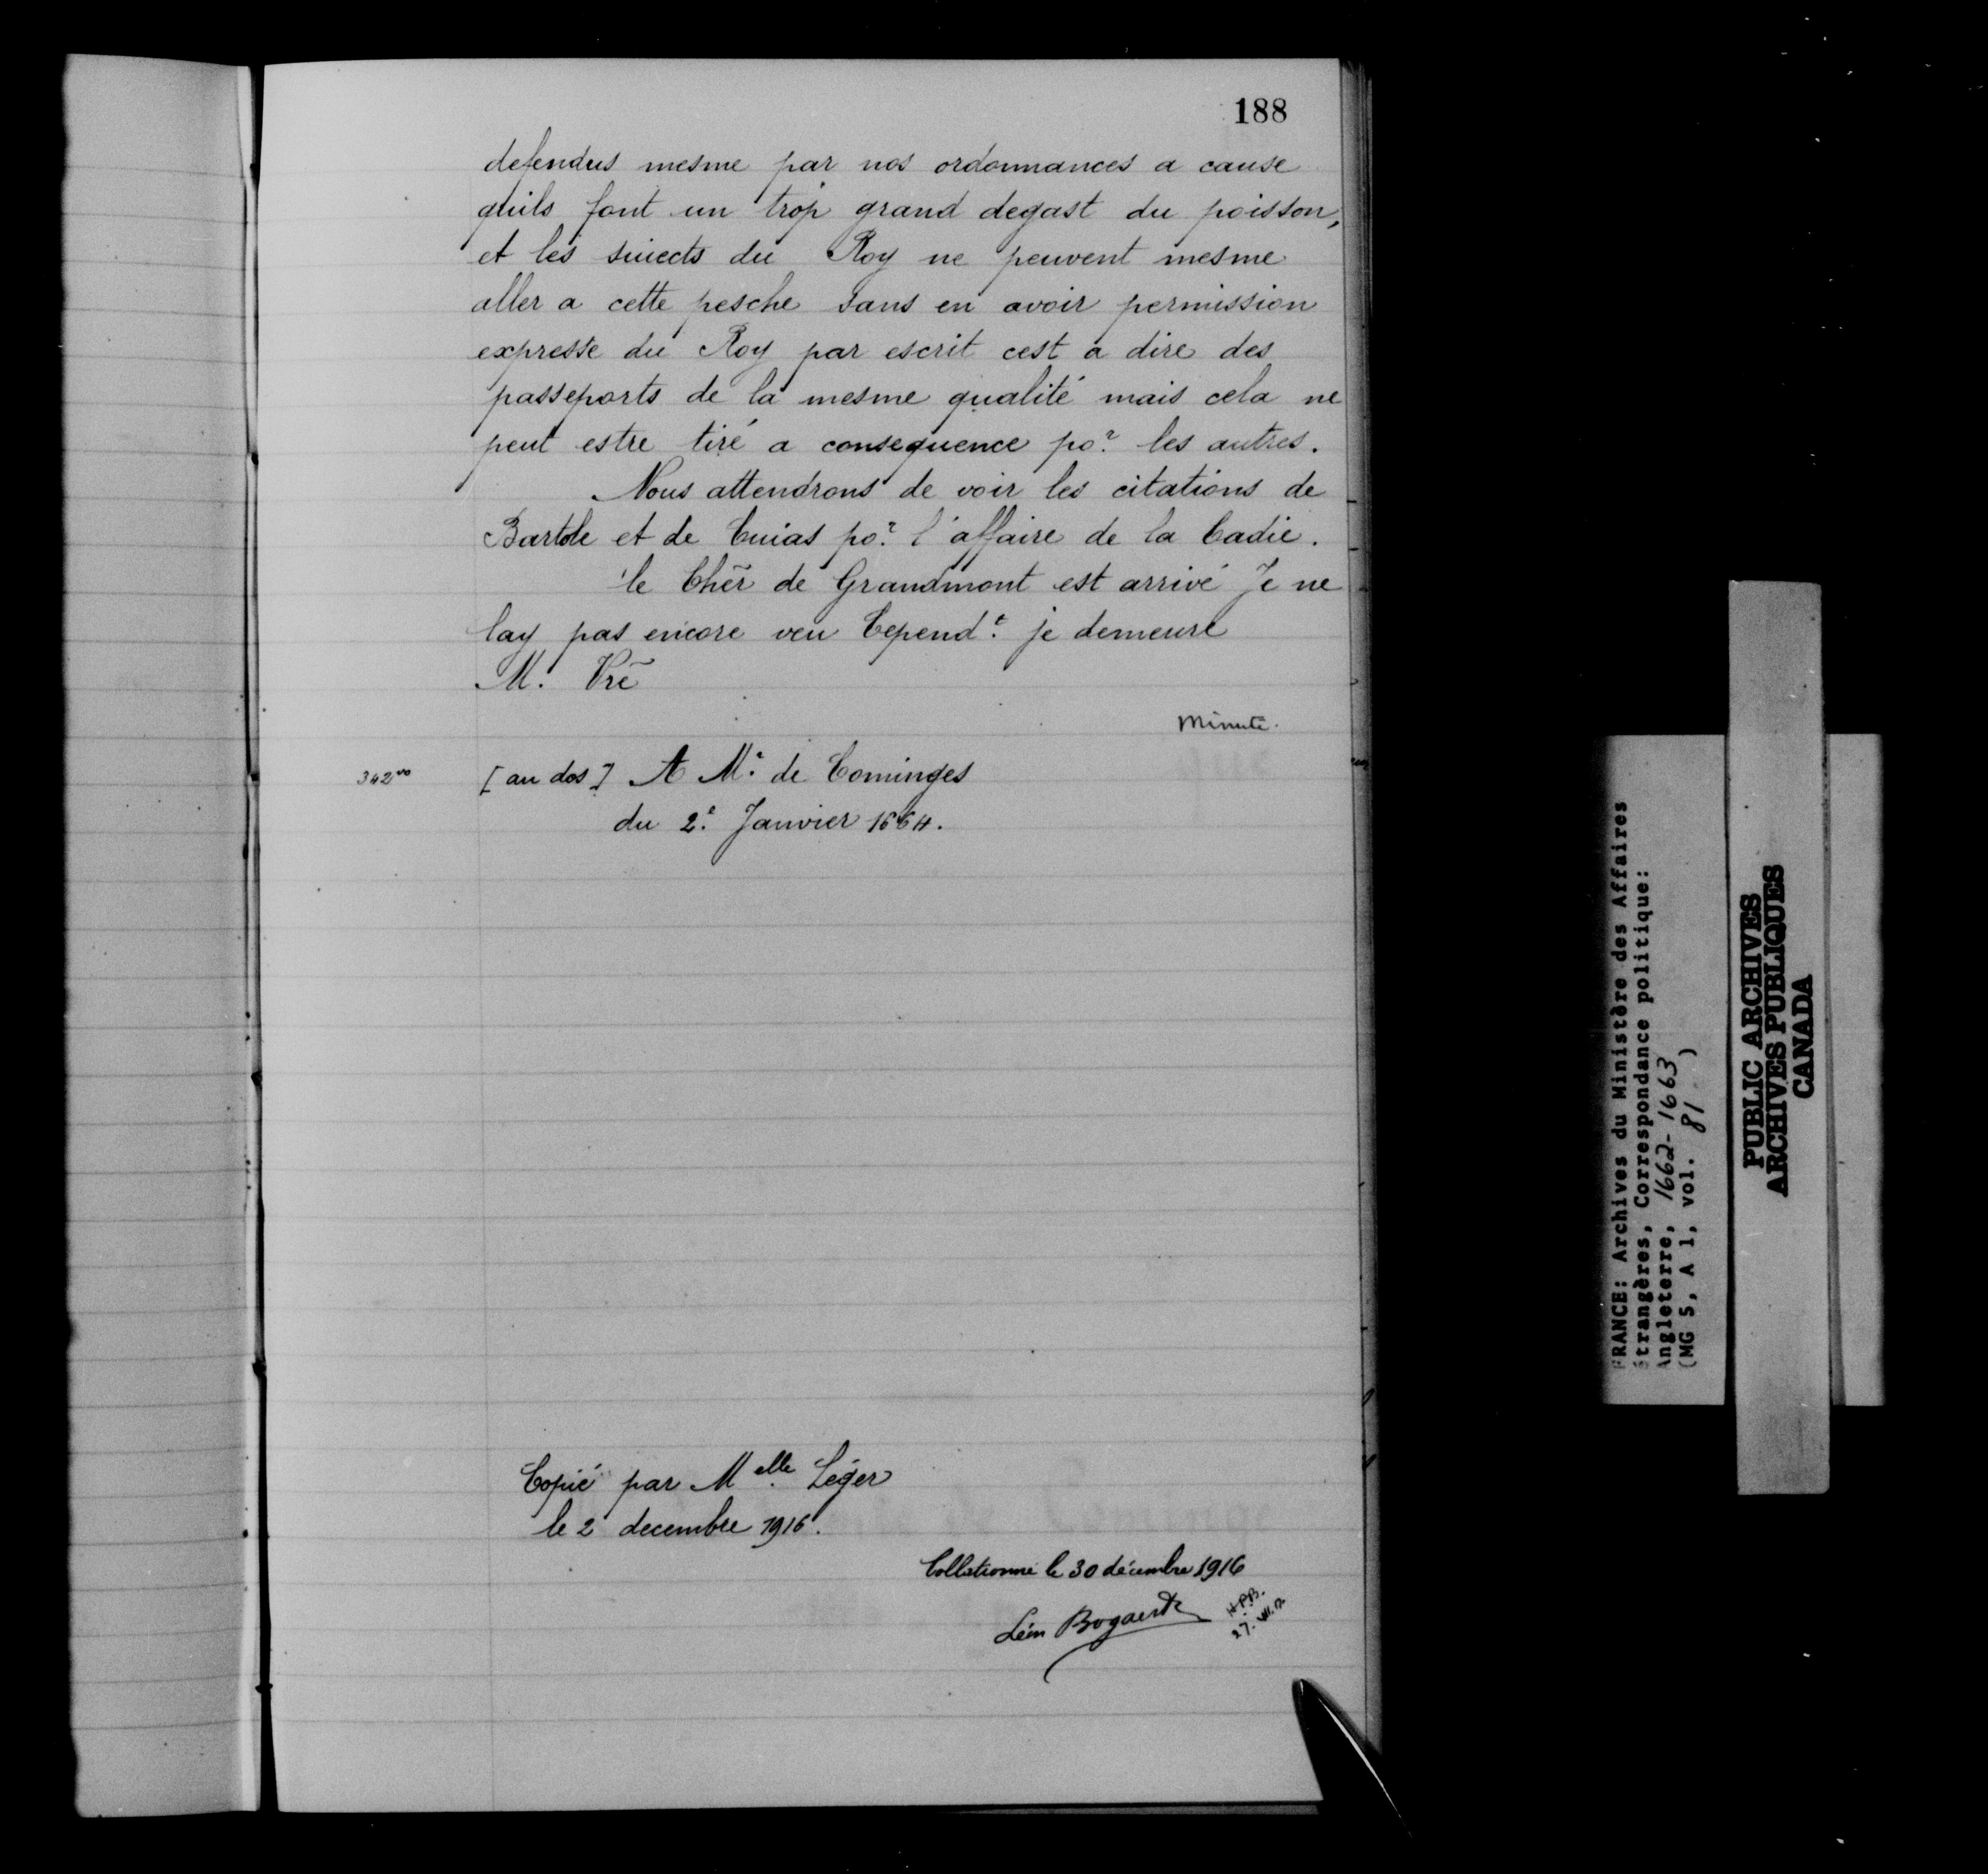 188
defendus mesme par nos ordonnances a cause
quils font un trop grand degast du poisson,
et les suiects du Roy ne peuvent mesme
aller a cette pesche sans en avoir permission
expresse du Roy par escrit cest a dire des
passeports de la mesme qualité mais cela ne
peut estre tiré a consequence po.r les autres.
Nous attendrons de voir les citations de
Bartole et de Cuias po.r l'affaire de la Cadie.
le Chēr de Grandmont est arrivé Je ne
lay pas encore veu Cepend.t je demeure
M. Vrē
Minute.
342vo
[au dos] A M.r de Cominges
du 2.e Janvier 1664.
Copié par Melle Léger
le 2 decembre 1916.
Collationné le 30 décembre 1916
Léon Bogaert
H.P.B.
FRANCE: Archives du Ministère des Affaires
Étrangères, Correspondance politique:
Angleterre, 1662-1663
(MG 5, A 1, vol. 81 )
PUBLIC ARCHIVES
ARCHIVES PUBLIQUES
CANADA